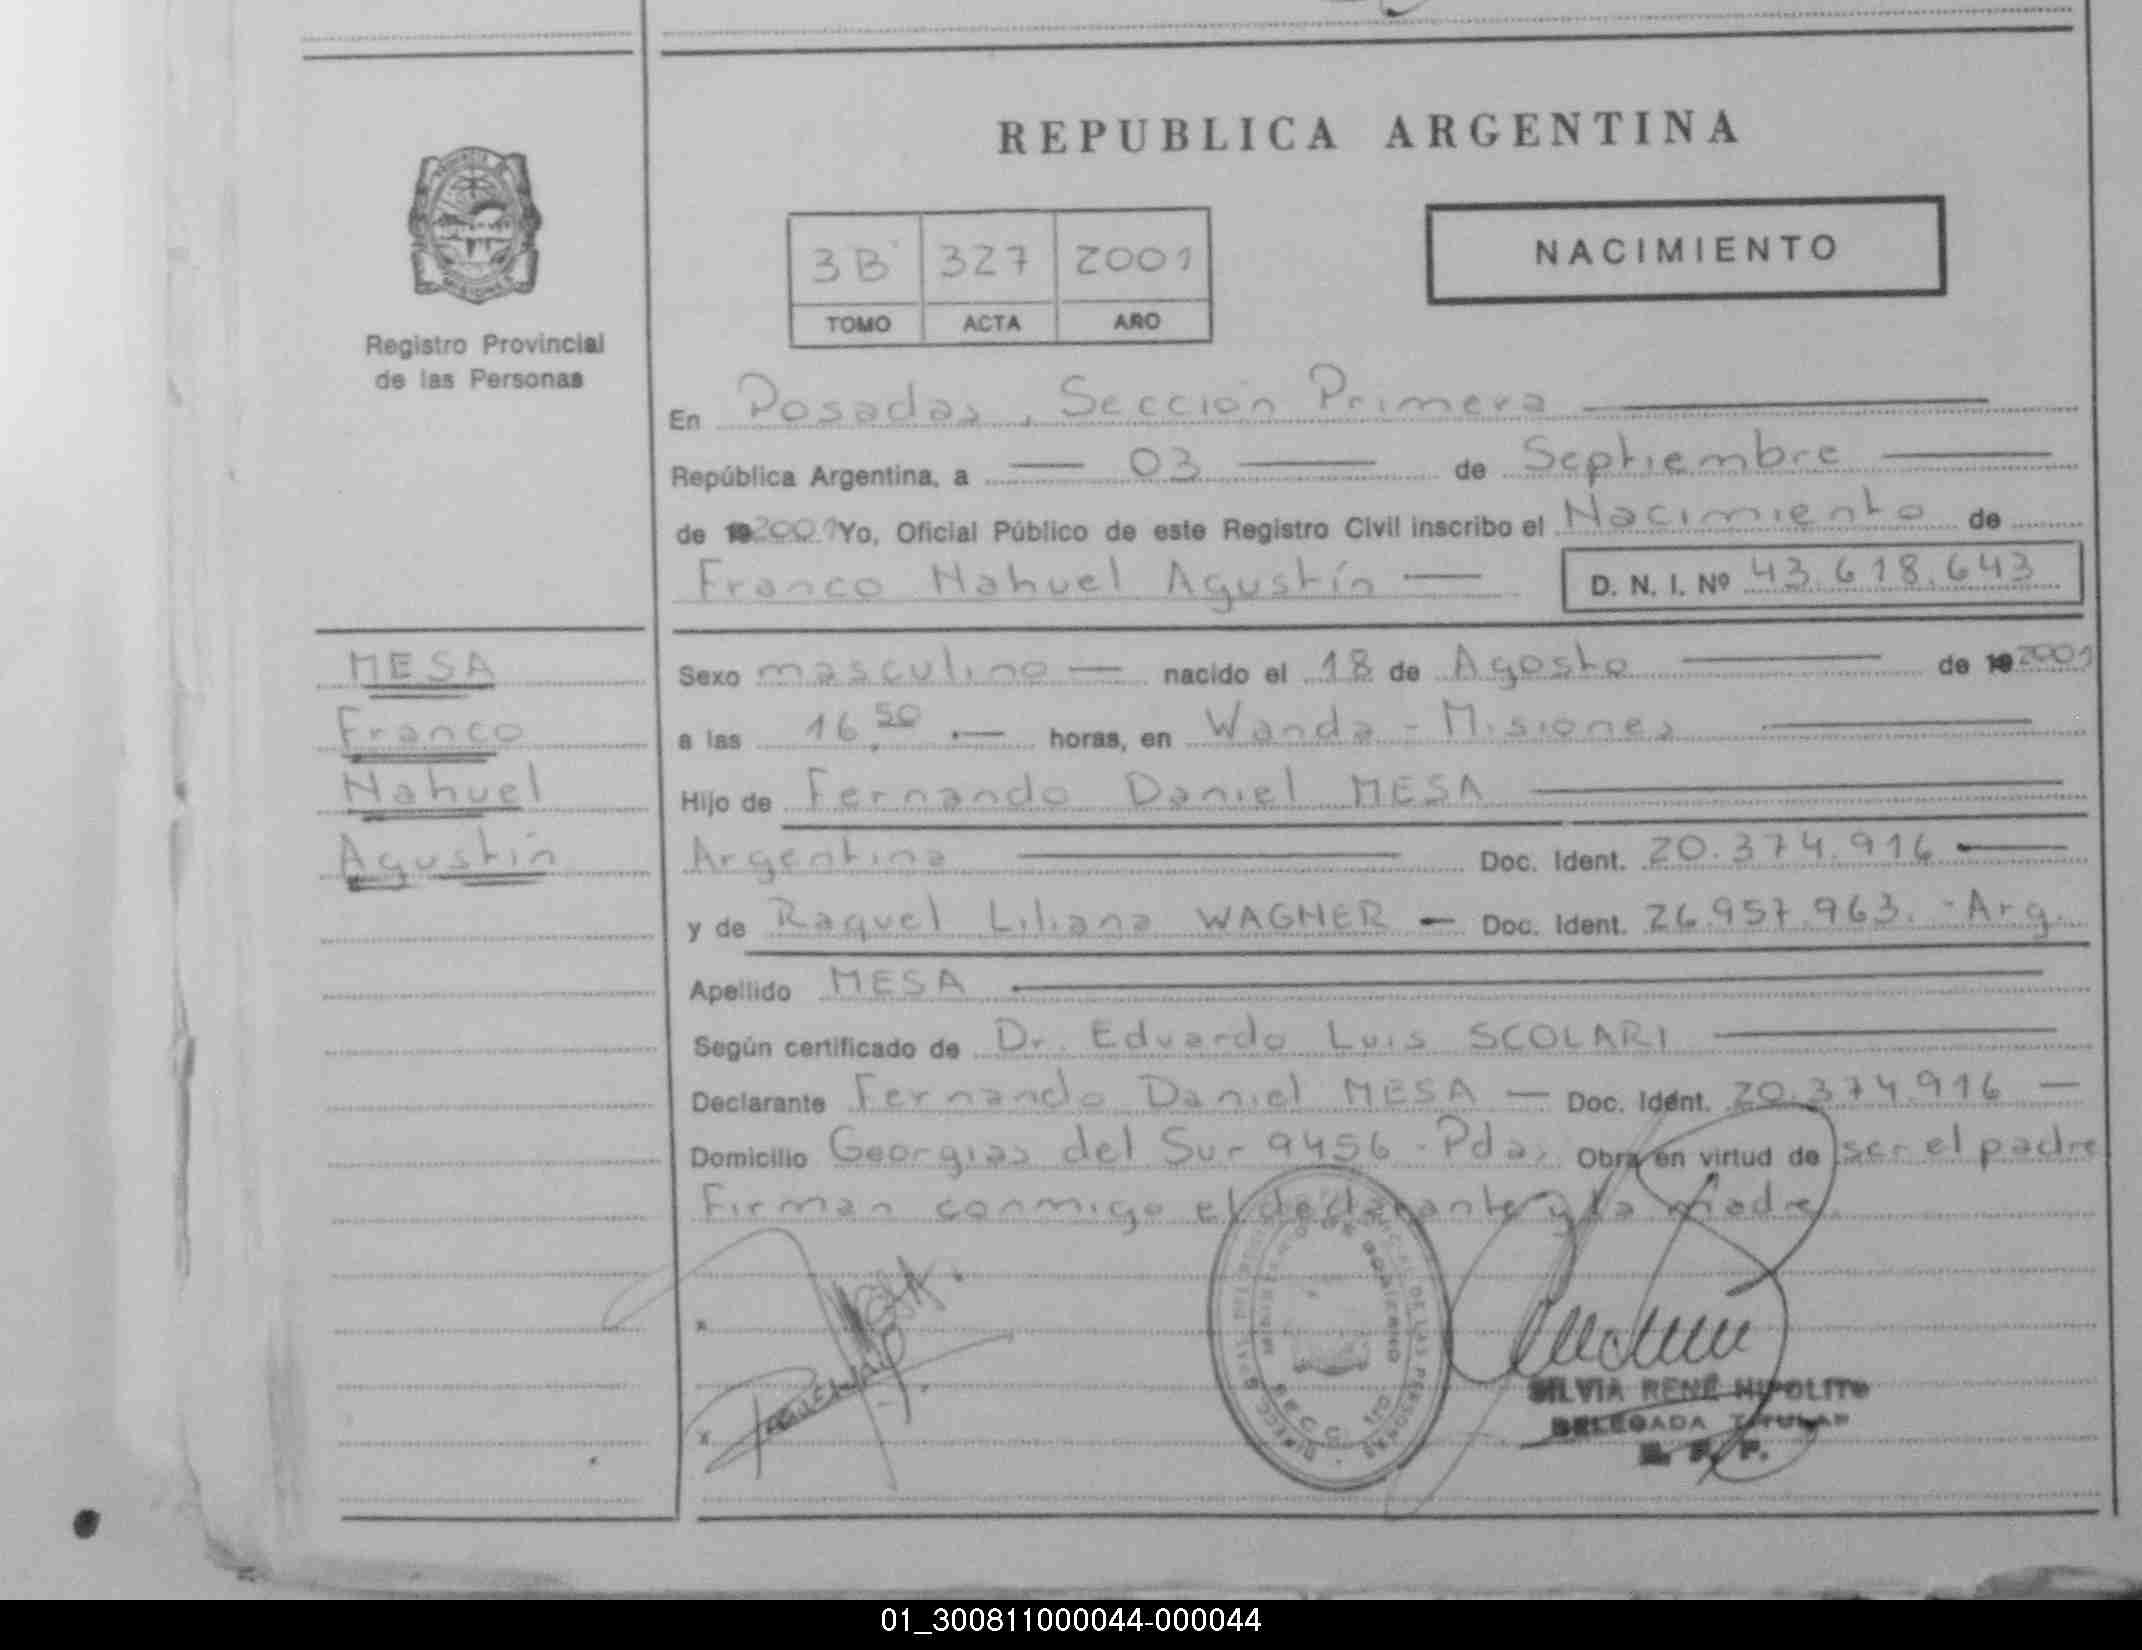 REPUBLICA ARGENTINA
NACIMIENTO
3B 327 2001
TOMO ACTA AÑO
Registro Provincial
de las Personas
En Posadas, Sección Primera
República Argentina, a 03 de Septiembre
de 19 2001 Yo, Oficial Público de este Registro Civil inscribo el Nacimiento de
Franco Nahuel Agustín D. N. I. Nº 43.618.643
MESA
Franco
Nahuel
Agustín
Sexo masculino nacido el 18 de Agosto de 19 2001
a las 16.50 horas, en Wanda - Misiones
Hijo de Fernando Daniel MESA
Argentina Doc. Ident. 20.374.916
y de Raquel Liliana WAGNER - Doc. Ident. 26.957.963. - Arg.
Apellido MESA
Según certificado de Dr. Eduardo Luis SCOLARI
Declarante Fernando Daniel MESA - Doc. Ident. 20.374.916
Domicilio Georgias del Sur 9456 - Pdas, Obra en virtud de ser el padre
Firman conmigo el declarante y la madre
SILVIA RENÉ HIPOLITO
DELEGADA TITULAR
R. P. P.
01_300811000044-000044